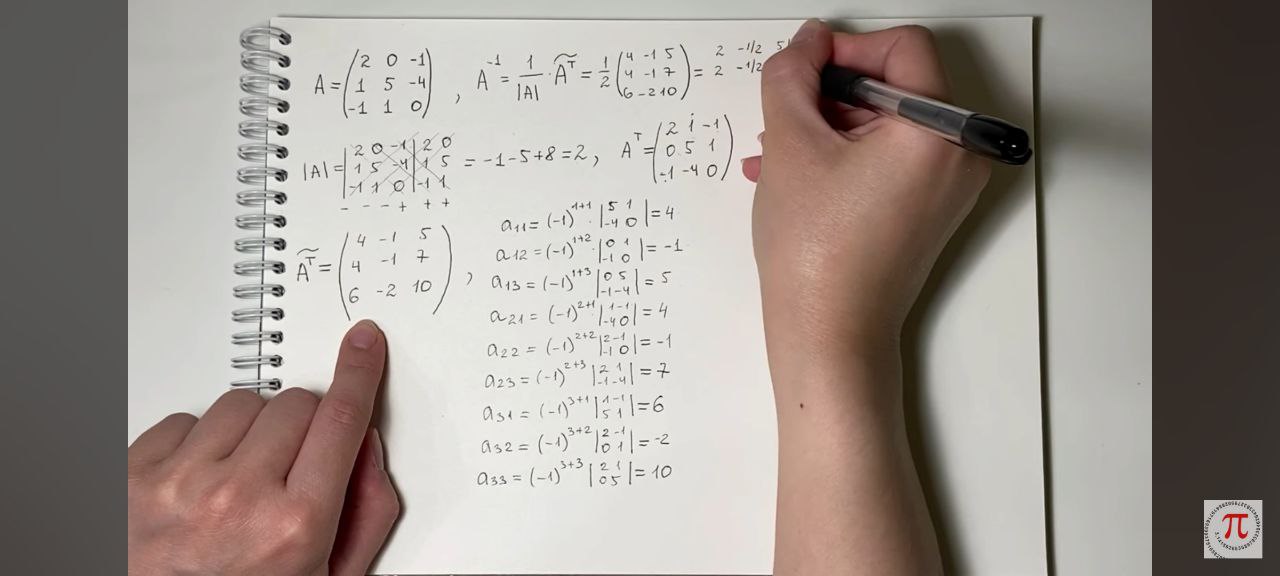 A = (2 0 -1
1 5 -4
-1 1 0) , A⁻¹ = 1/|A| · Ãᵀ = 1/2 (4 -1 5
4 -1 7
6 -2 10) = 2 -1/2 5/
2 -1/2
|A| = |2 0 -1| 2 0
1 5 -4| 1 5
-1 1 0| -1 1 = -1-5+8=2 , Aᵀ = (2 1 -1
0 5 1
-1 -4 0)
- - - + + +
Ãᵀ = (4 -1 5
4 -1 7
6 -2 10) ,
a11 = (-1)¹⁺¹ · |5 1
-4 0| = 4
a12 = (-1)¹⁺² · |0 1
-1 0| = -1
a13 = (-1)¹⁺³ |0 5
-1 -4| = 5
a21 = (-1)²⁺¹ |1 -1
-4 0| = 4
a22 = (-1)²⁺² |2 -1
-1 0| = -1
a23 = (-1)²⁺³ |2 1
-1 -4| = 7
a31 = (-1)³⁺¹ |1 -1
5 1| = 6
a32 = (-1)³⁺² |2 -1
0 1| = -2
a33 = (-1)³⁺³ |2 1
0 5| = 10
π